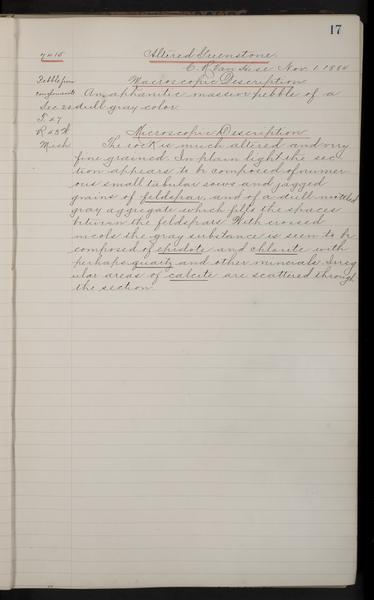 17
Altered Greenstone.
Nov. 1. 1884
Macroscopic Description
Pebble from
conglomerate
An aphanitic massive pebble of a
Sec 22 dull gray color
T 47
R 25 W
Mich
Microscopic Description
The rock is much altered and very
fine grained. In plain light the sec
tion appears to be composed of numer
ous small tabular and jagged
grains of feldspar, and of a dull mottled
gray aggregate which fills the spaces
between the feldspars. With crossed
nicols the gray substance is seen to be
composed of epidote and chlorite with
perhaps quartz and other minerals. Irreg
ular areas of calcite are scattered through
the section.